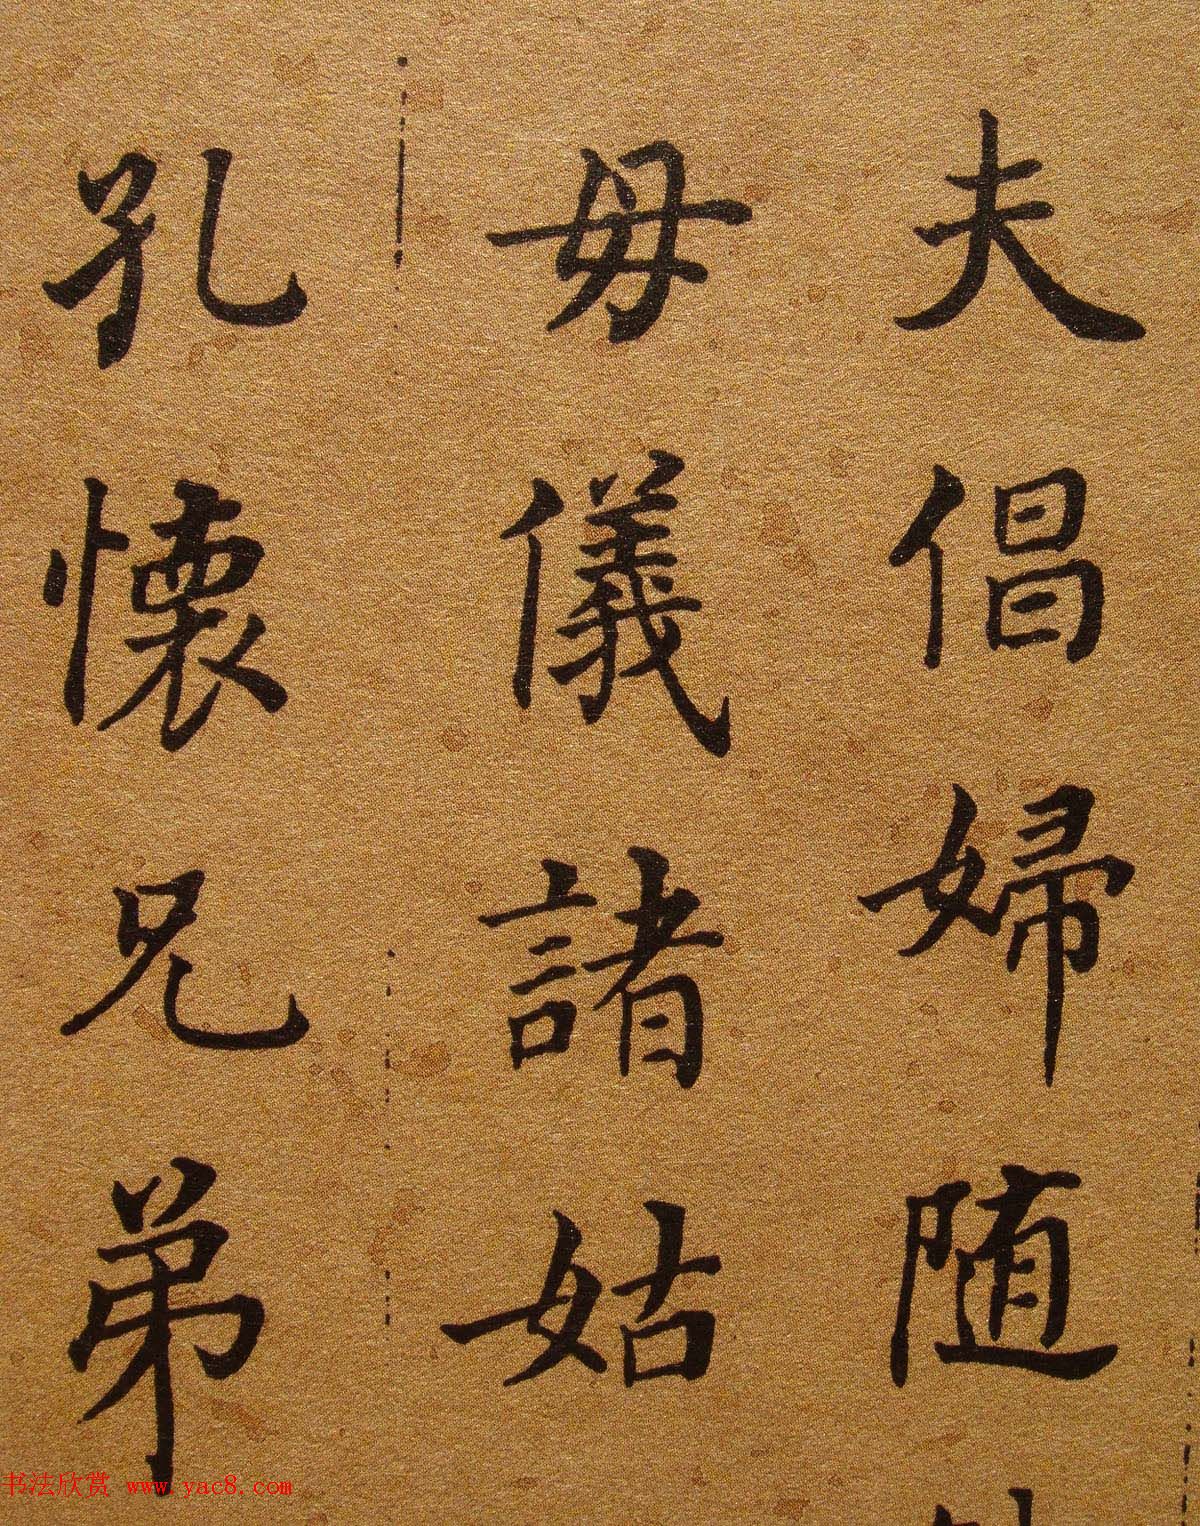 夫倡婦随
母儀諸姑
孔懷兄弟
书法欣赏 www.yac8.com